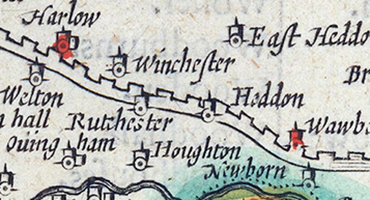 Harlow
East Heddo
Winchester
Br
Welton
Heddon
n hall
Rutchester
Wawb
ouing
ham
Houghton
Newborn